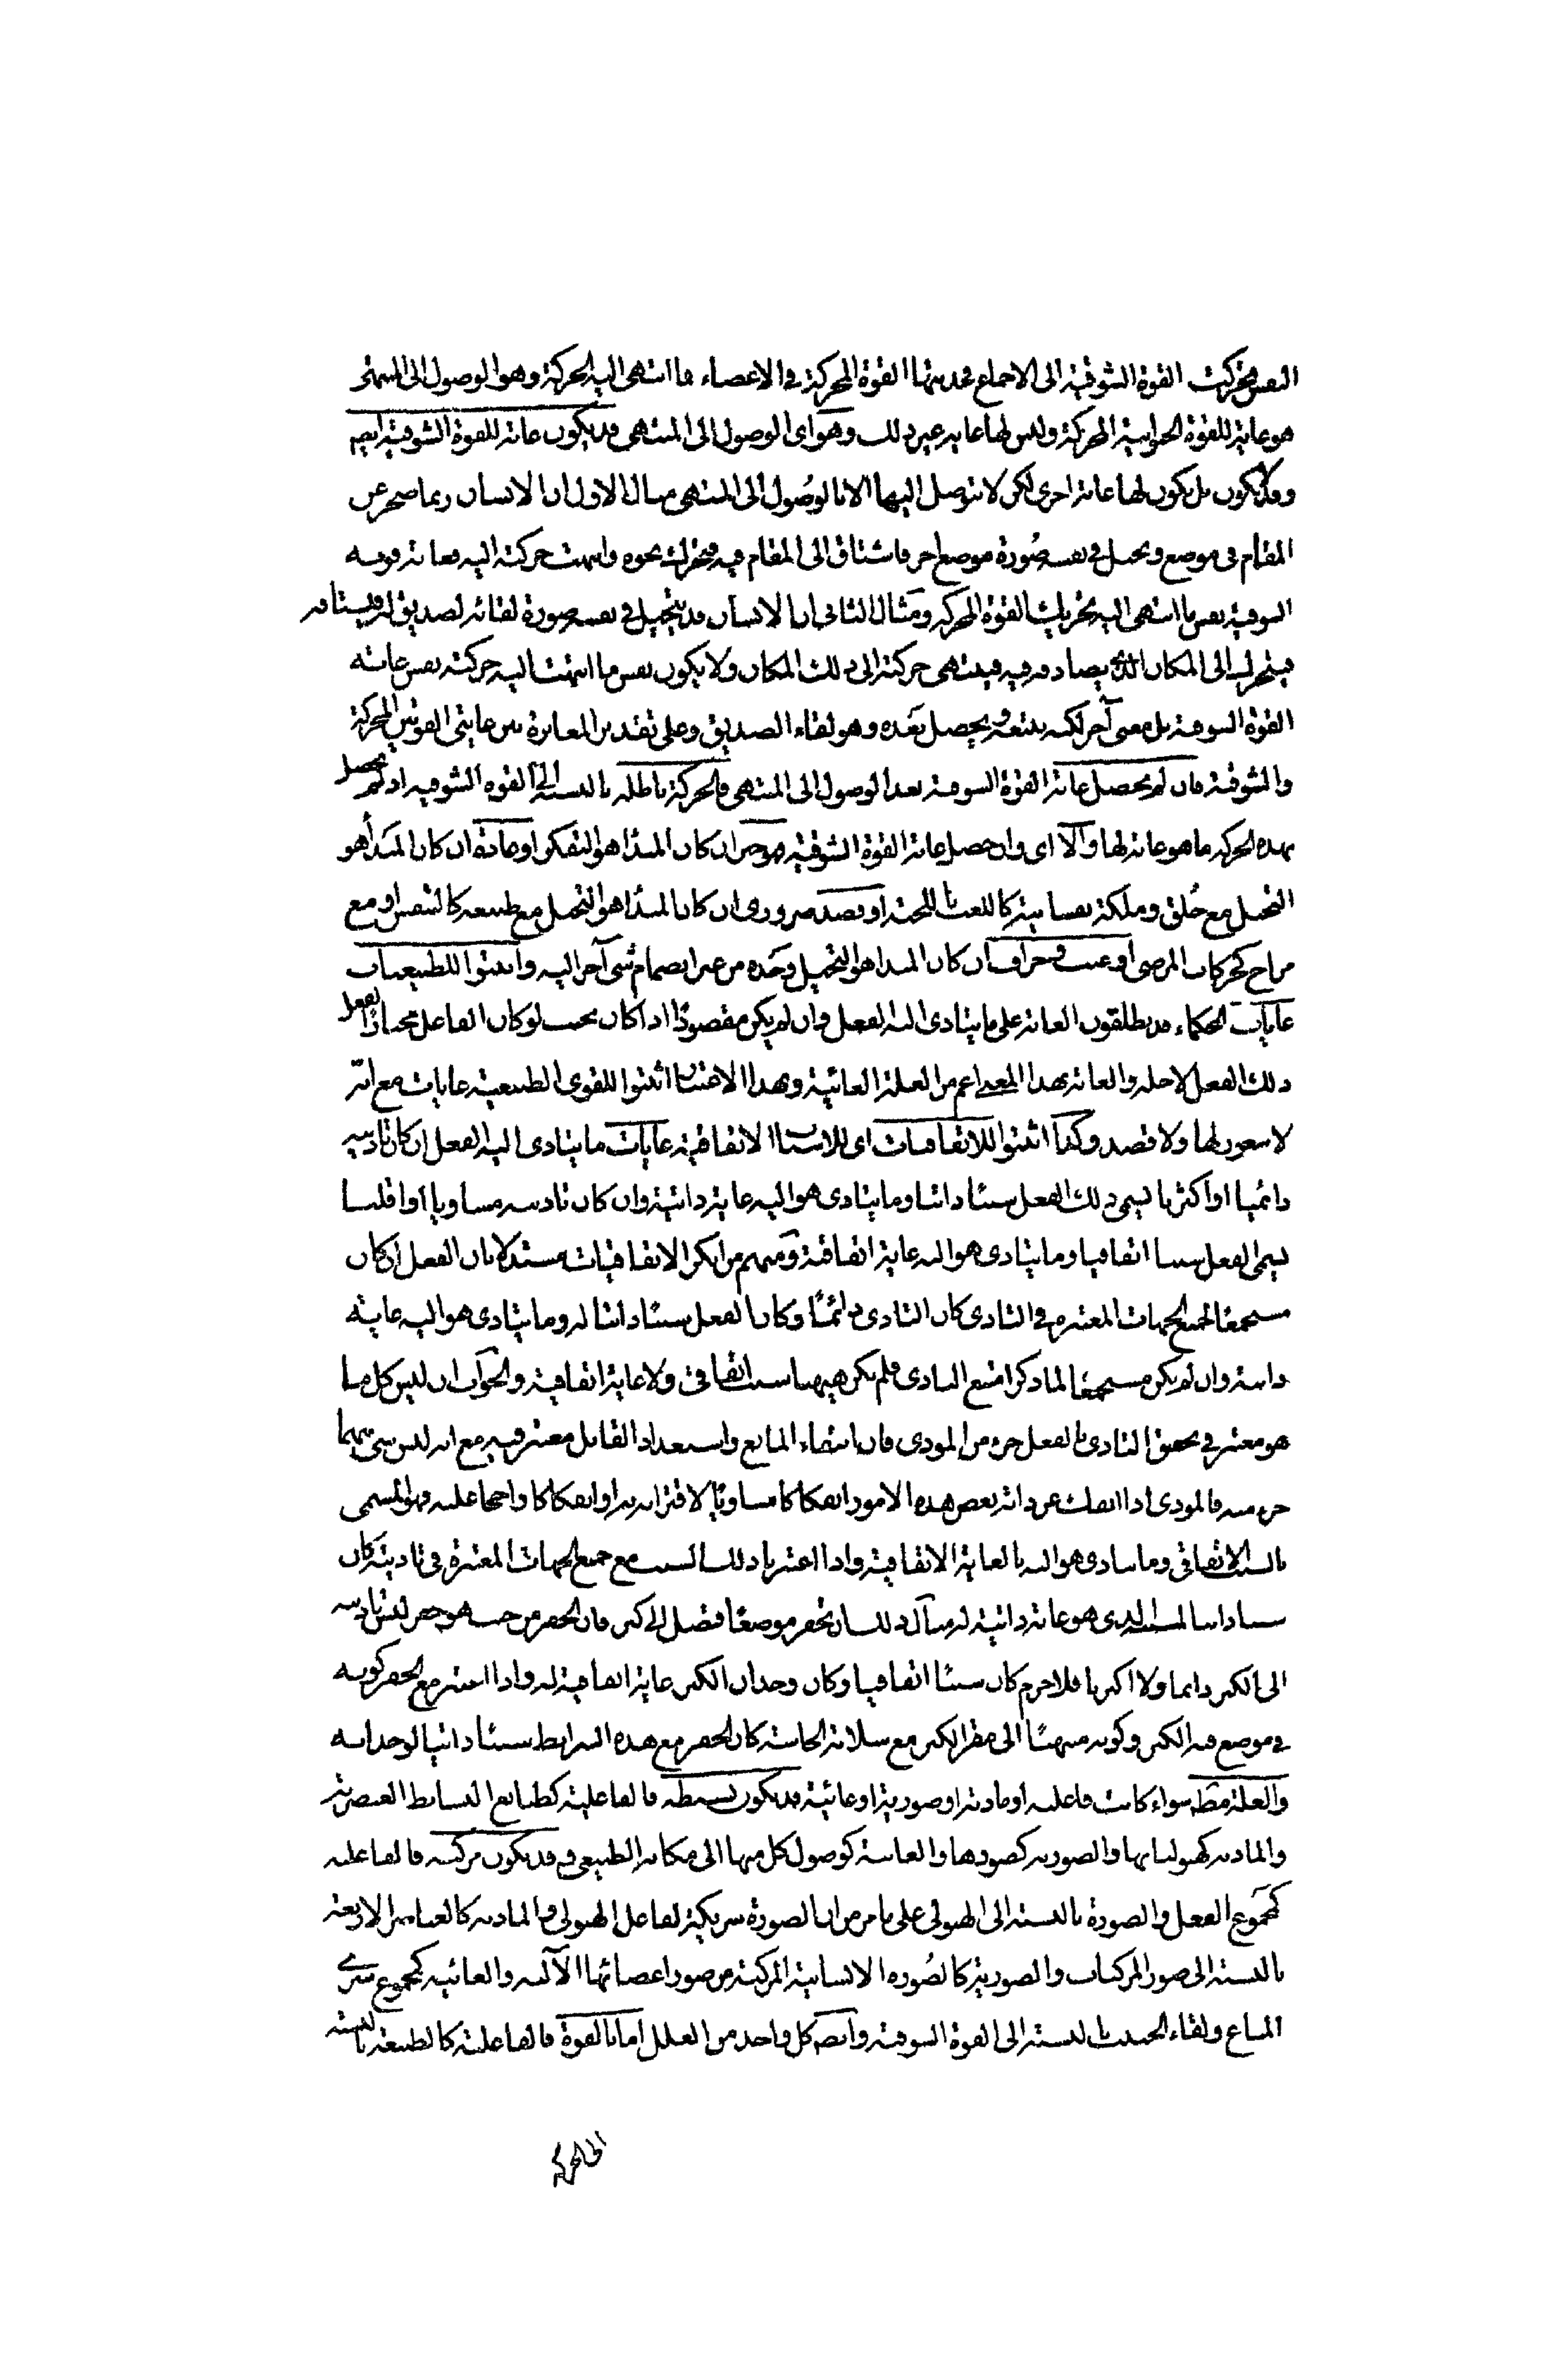 النفس فحركت القوة الشوقية الى الاجماع فخدمتها القوة المحركة في الاعضاء فما انتهى اليه الحركة وهو الوصول الى المنتهى
هو غاية للقوة الحيوانية المحركة وليس لها غاية غير ذلك وهو اى الوصول الى المنتهى قد يكون غاية للقوة الشوقية ايضا
وقد لا يكون بل يكون لها غاية اخرى لكن لا يتوصل اليها الا بالوصول الى المنتهى مثال الاول ان الانسان ربما ضجر عن
المقام في موضع ويخيل في نفسه صورة موضع اخر فاشتاق الى المقام فيه فتحرك نحوه وانتهت حركته اليه فغاية قوته
الشوقية نفس ما انتهى اليه تحريك القوة المحركة ومثال الثانى ان الانسان قد يتخيل في نفسه صورة لقائه لصديق له فيشتاقه
فيتحرك الى المكان الذى يصادفه فيه فينتهى حركته الى ذلك المكان ولا يكون نفس ما انتهت اليه حركته نفس غاية
القوة الشوقية بل معنى آخر لكنه يتبعه ويحصل بعده وهو لقاء الصديق وعلى تقدير المغايرة بين غايتى القوتين المحركة
والشوقية فان لم يحصل غاية القوة الشوقية بعد الوصول الى المنتهى فالحركة باطلة بالنسبة الى القوة الشوقية اذ لم يحصل
بهذه الحركة ما هو غاية لها والا اى وان حصل غاية القوة الشوقية فهو خير ان كان المبدأ هو التفكر او عادة ان كان المبدأ هو
التخيل مع خلق وملكة نفسانية كاللعب باللحية او قصد ضرورى ان كان المبدأ هو التخيل مع طبيعة كالتنفس او مع
مزاج كحركات المرضى او عبث وجزاف ان كان المبدا هو التخيل وحده من غير انضمام شىء آخر اليه واثبتوا للطبيعيات
غايات الحكماء قد يطلقون الغاية على ما يتادى اليه الفعل وان لم يكن مقصودا اذا كان بحيث لو كان الفاعل مختارا لفعل
ذلك الفعل لاجله والغاية بهذا المعنى اعم من العلة الغائية وبهذا الاعتبار اثبتوا للقوى الطبيعية غايات مع انه
لا شعور لها ولا قصد وكذا اثبتوا للاتفاقيات اى للاسباب الاتفاقية غايات ما يتادى اليه الفعل ان كان تاديه
دائميا او اكثريا يسمى ذلك الفعل سببا ذاتيا وما يتادى هو اليه غاية ذاتية وان كان تاديه مساويا او اقليا
يسمى الفعل سببا اتفاقيا وما يتادى هو اليه غاية اتفاقية ومنهم من انكر الاتفاقيات مستدلا بان الفعل ان كان
مستجمعا لجميع الجهات المعتبرة في التادى كان التادى دائميا وكان الفعل سببا ذاتيا له وما يتادى هو اليه غاية
ذاتية وان لم يكن مستجمعا لما ذكر امتنع التادى فلم يكن هيهنا سبب اتفاقى ولا غاية اتفاقية والجواب ان ليس كل ما
هو معتبر في تحقق التادى بالفعل جزء من المودى فان انتفاء المانع واستعداد القابل معتبر فيه مع انه ليس شىء منهما
جزء منه فالمودى اذا انفك عن ذاته بعض هذه الامور انفكاكا مساويا لاقترانه به او انفكاكا راجحا عليه فهو المسمى
بالسبب الاتفاقى وما يتادى هو اليه بالغاية الاتفاقية واذا اعتبر ذلك السبب مع جميع الجهات المعتبرة في تاديته كان
سببا ذاتيا لمسببه الذى هو غاية ذاتية له مثال ذلك ان تحفر موضعا فتصل الى كنز فان الحفر من حيث هو حفر ليس تاديه
الى الكنز دائما ولا اكثريا فلا جرم كان سببا اتفاقيا وكان وجدان الكنز غاية اتفاقية له واذا اعتبر مع الحفر كونه
في موضع فيه الكنز وكونه منتهيا الى مقر الكنز مع سلامة الحاسة كان الحفر مع هذه الشرايط سببا ذاتيا لوجدانه
والعلة مط سواء كانت فاعلية او مادية او صورية او غائية قد يكون بسيطة فالفاعلية كطبائع البسائط العنصرية
والمادية كهيولياتها والصورية كصورها والغائية كوصول كل منها الى مكانه الطبيعى وقد يكون مركبة فالفاعلية
كمجموع الفعل والصورة بالنسبة الى الهيولى على ما مر من ان الصورة شريكة لفاعل الهيولى والمادية كالعناصر الاربعة
بالنسبة الى صور المركبات والصورية كالصورة الانسانية المركبة من صور اعضائها الآلية والغائية كمجموع شرى
المتاع ولقاء الحبيب بالنسبة الى القوة الشوقية وايضا كل واحد من العلل اما بالقوة فالفاعلية كالطبيعة بالنسبة
الى الحركة